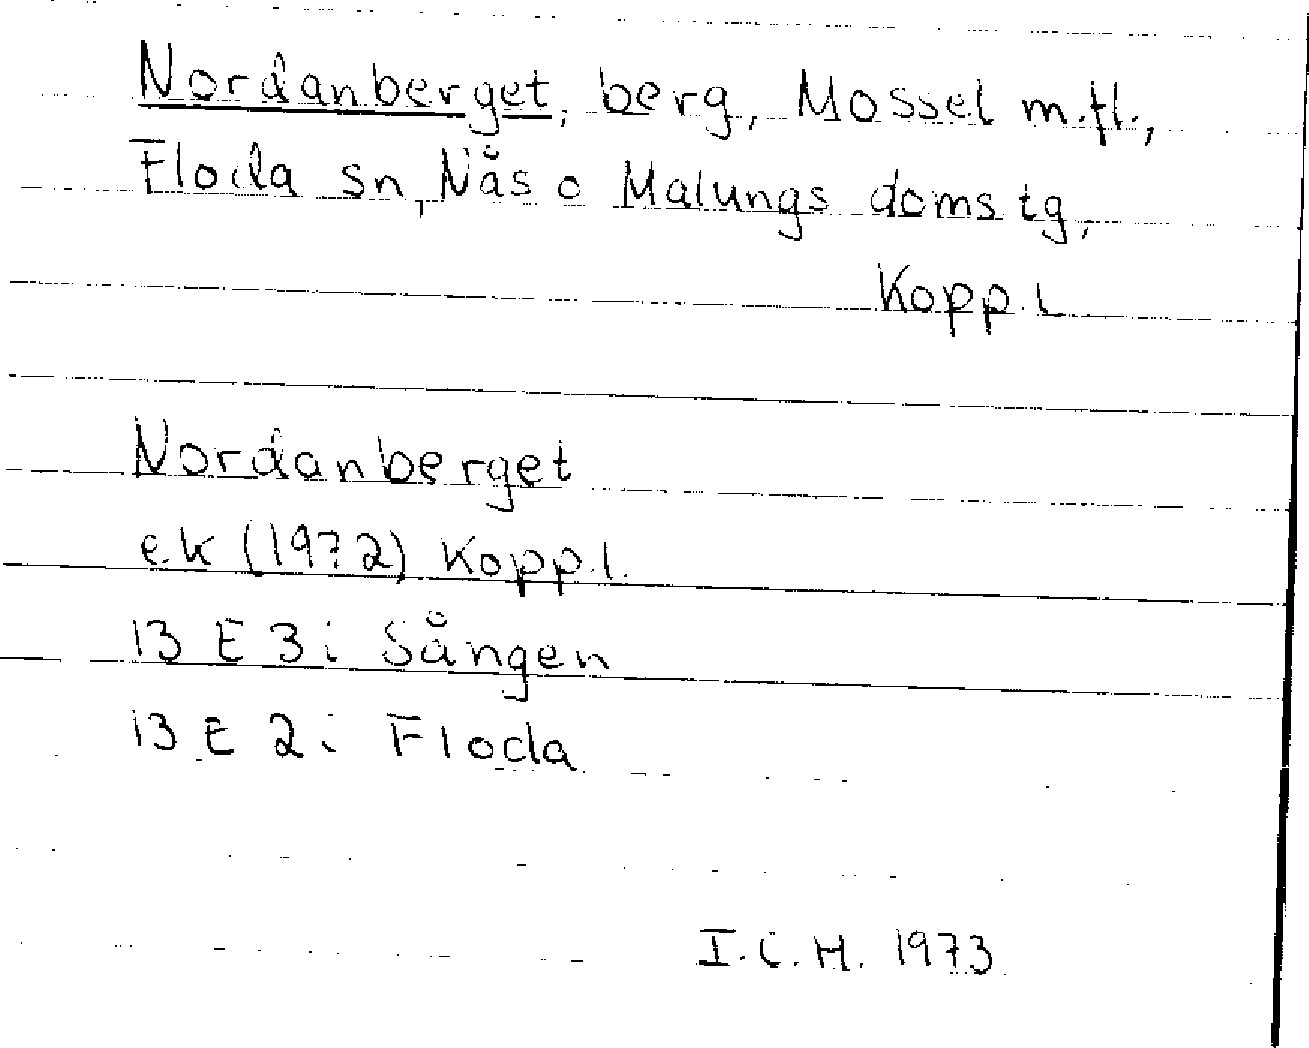 Nordanberget, berg, Mossel m.fl.,
Floda sn, Nås o Malungs domstg,
Kopp.l
Nordanberget
ek (1972) Kopp.l.
13 E 3i Sången
13 E 2i Floda
I.C.H. 1973